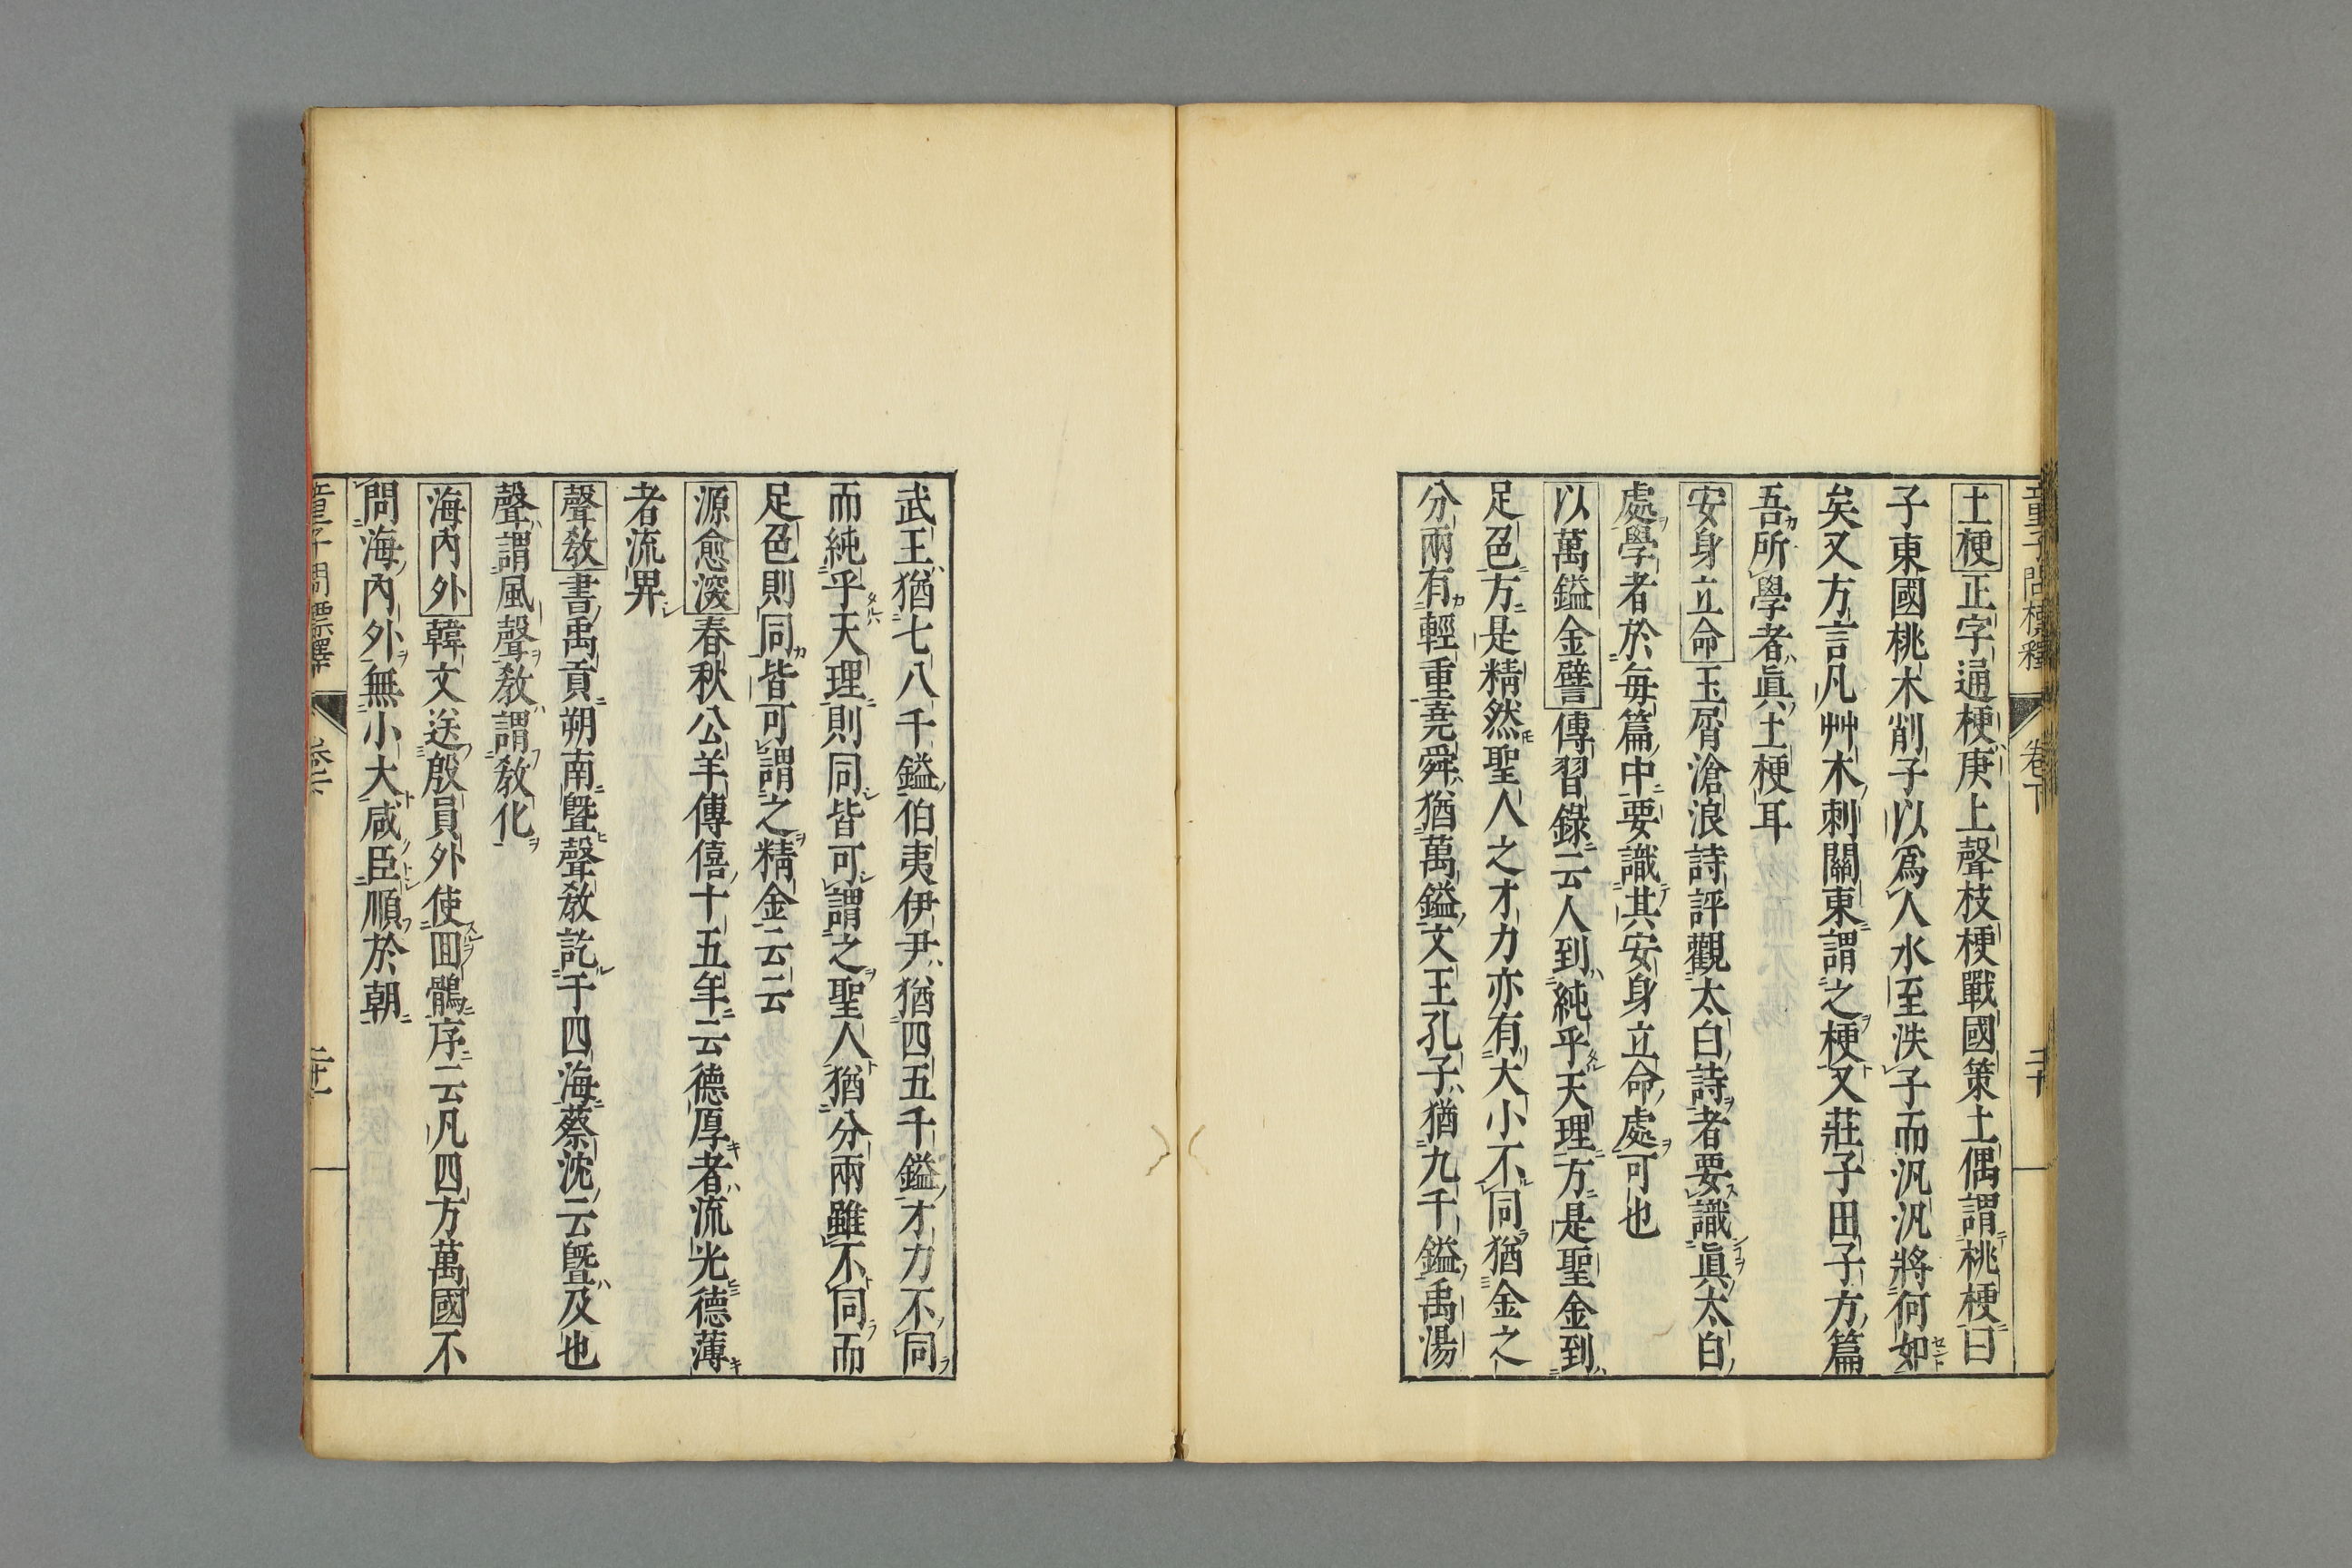 童子問標釋 卷下 二十
土梗正字通梗庚上聲枝梗戰國策土偶謂桃梗曰
子東國桃木削子以爲人水至泆子而汎汎將何如
矣又方言凡艸木刺關東謂之梗又莊子田子方篇
吾所學者眞土梗耳
安身立命玉屑滄浪詩評觀太白詩者要識眞太白
處學者於每篇中要識其安身立命處可也
以萬鎰金譬傳習錄云人到純乎天理方是聖金到
足色方是精然聖人之才力亦有大小不同猶金之
分兩有輕重堯舜猶萬鎰文王孔子猶九千鎰禹湯
武王猶七八千鎰伯夷伊尹猶四五千鎰才力不同
而純乎天理則同皆可謂之聖人猶分兩雖不同而
足色則同皆可謂之精金云云
源愈深春秋公羊傳僖十五年云德厚者流光德薄
者流界
聲敎書禹貢朔南曁聲敎訖于四海蔡沈云曁及也
聲謂風聲敎謂敎化
海內外韓文送殷員外使囬鶻序云凡四方萬國不
問海內外無小大咸臣順於朝
童子問標釋 卷下 二十一